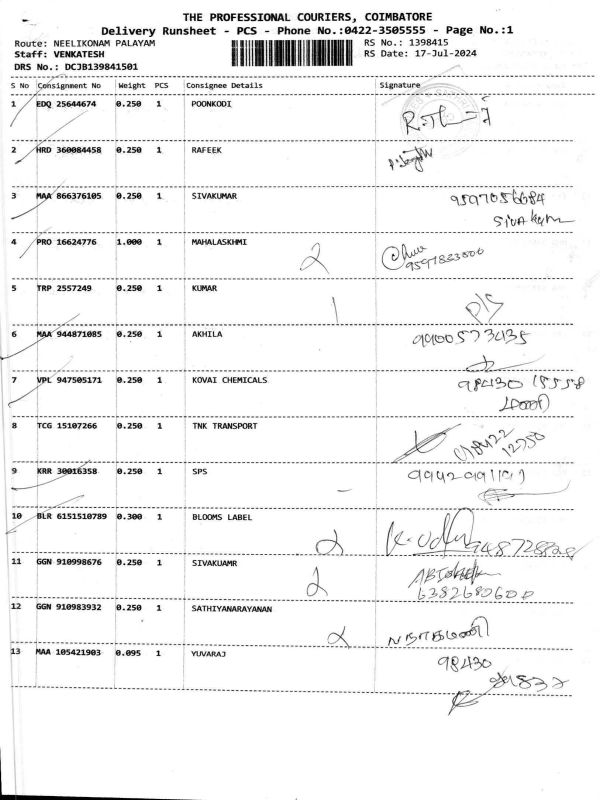 THE PROFESSIONAL COURIERS, COIMBATORE
Delivery Runsheet - PCS - Phone No.:0422-3505555 - Page No.:1
Route: NEELIKONAM PALAYAM RS No.: 1398415
Staff: VENKATESH RS Date: 17-Jul-2024
DRS No.: DCJB139841501
S No Consignment No Weight PCS Consignee Details Signature
1 EDQ 25644674 0.250 1 POONKODI
2 HRD 360084458 0.250 1 RAFEEK
3 MAA 866376105 0.250 1 SIVAKUMAR 9597056684
Sivakum
4 PRO 16624776 1.000 1 MAHALASKHMI 2
9597833000
5 TRP 2557249 0.250 1 KUMAR
1
6 MAA 944871085 0.250 1 AKHILA 9900573435
7 VPL 947505171 0.250 1 KOVAI CHEMICALS 98430 15558
மணி
8 TCG 15107266 0.250 1 TNK TRANSPORT
12750
9 KRR 30016358 0.250 1 SPS
10 BLR 6151510789 0.300 1 BLOOMS LABEL
2
11 GGN 910998676 0.250 1 SIVAKUAMR
2 6382682600
12 GGN 910983932 0.250 1 SATHIYANARAYANAN
2 நாகமணி
13 MAA 105421903 0.095 1 YUVARAJ 98430